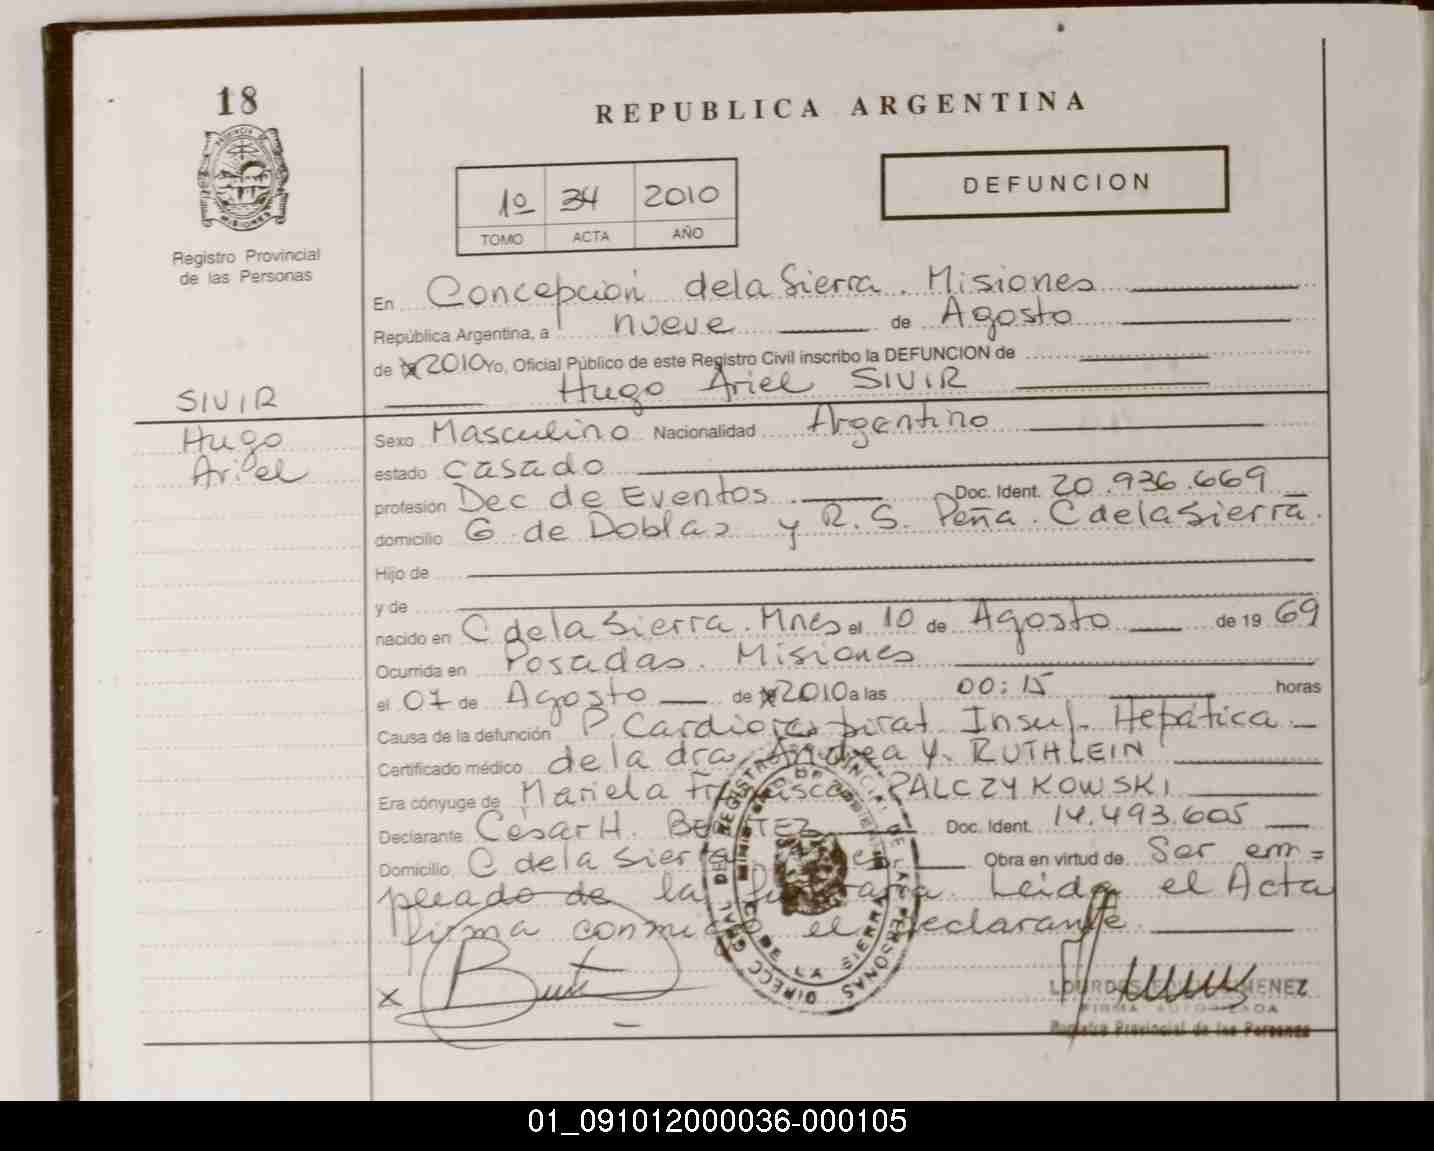 18
REPUBLICA ARGENTINA
DEFUNCION
1º 34 2010
TOMO ACTA AÑO
Registro Provincial
de las Personas
En Concepción de la Sierra. Misiones
República Argentina, a nueve de Agosto
de 2010 Yo, Oficial Público de este Registro Civil inscribo la DEFUNCION de
Hugo Ariel SIVIR
SIVIR
Hugo
Ariel
Sexo Masculino Nacionalidad Argentino
estado casado
profesión Dec de Eventos Doc. Ident. 20.936.669
domicilio G. de Doblas y R. S. Peña. C de la Sierra.
Hijo de
y de
nacido en C de la Sierra. Mnes el 10 de Agosto de 19 69
Ocurrida en Posadas. Misiones
el 07 de Agosto de 2010 a las 00:15 horas
Causa de la defunción P. Cardiorespirat. Insuf. Hepática
Certificado médico de la dra. Andrea Y. RUTHLEIN
Era cónyuge de Mariela Francisca PALCZYKOWSKI
Declarante César H. BENITEZ Doc. Ident. 14.493.605
Domicilio C de la Sierra Obra en virtud de Ser em=
pleado de la funeraria. Leida el Acta
firma conmigo el declarante
DIRECC. GRAL. DEL REGISTRO PROVINCIAL DE LAS PERSONAS
MINISTERIO DE GOBIERNO
DE LA SIERRA
x
LOURDES JIMENEZ
FIRMA AUTORIZADA
Registro Provincial de las Personas
01_091012000036-000105